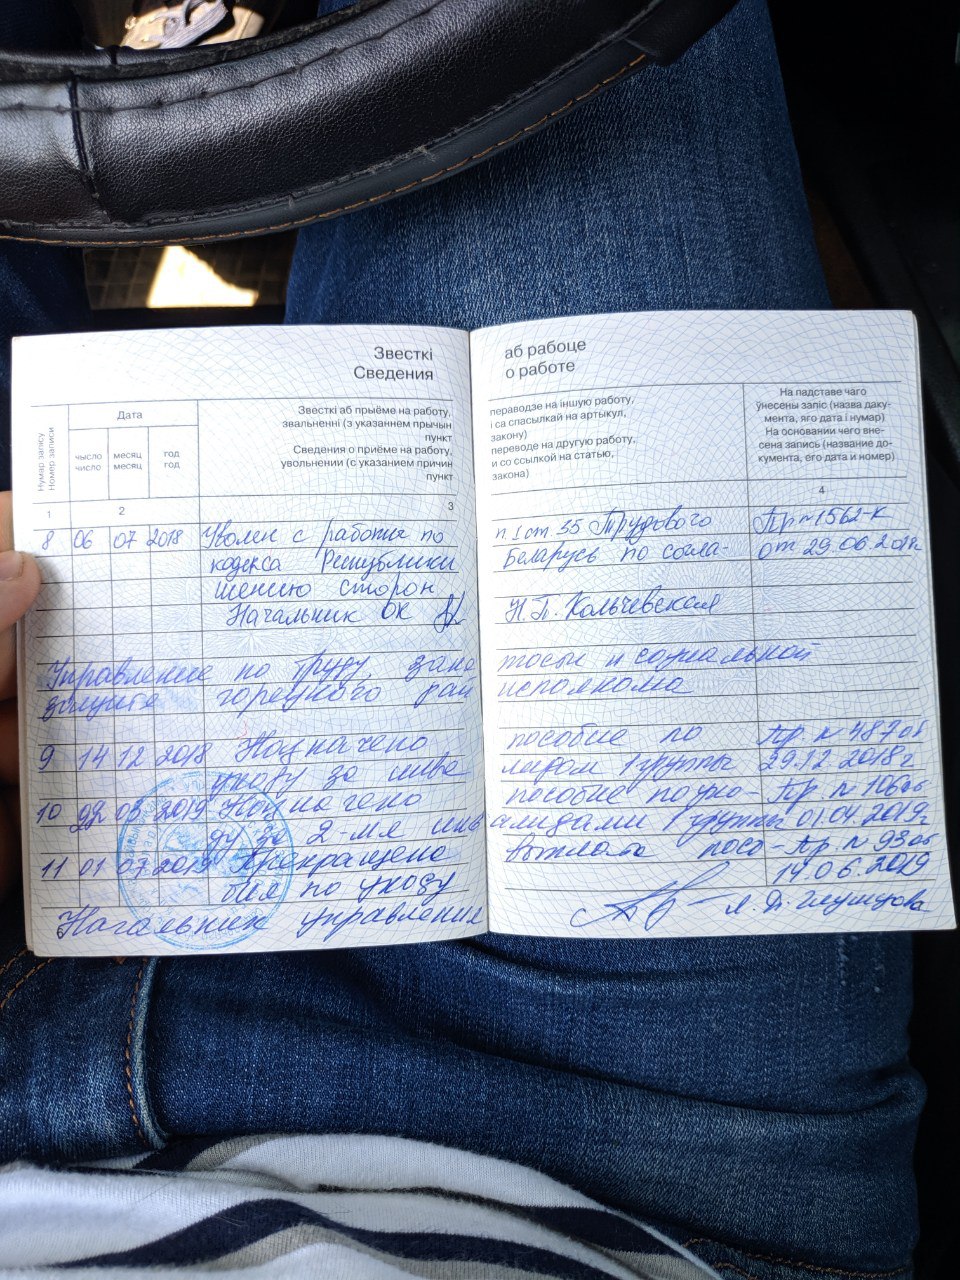 Звесткі аб рабоце
Сведения о работе
Нумар запісу
Номер записи
Дата
чысло
число
месяц
месяц
год
год
Звесткі аб прыёме на работу, пераводзе на іншую работу,
звальненні (з указаннем прычын і са спасылкай на артыкул,
пункт закону)
Сведения о приёме на работу, переводе на другую работу,
увольнении (с указанием причин и со ссылкой на статью,
пункт закона)
На падставе чаго
ўнесены запіс (назва даку-
мента, яго дата і нумар)
На основании чего вне-
сена запись (название до-
кумента, его дата и номер)
1 2 3 4
8 06 07 2018 Уволен с работы по п. 1 ст. 35 Трудового Пр №1562-к
кодекса Республики Беларусь по согла- от 29.06.2018г
шению сторон
Начальник ОК Н.П. Кольчевская
Управление по труду заня тости и социальной
защите горецкого рай исполкома
9 14 12 2018 Назначено пособие по Пр. № 487об
уходу за инва лидом 1 группы 29.12.2018г
10 22 03 2019 Назначено пособие по ухо- Пр №106об
ду за 2-мя инв алидами 1 группы 01.04.2019г
11 01 07 2019 Прекращено выплата посо- Пр. №93об
бия по уходу 14.06.2019
Начальник управления